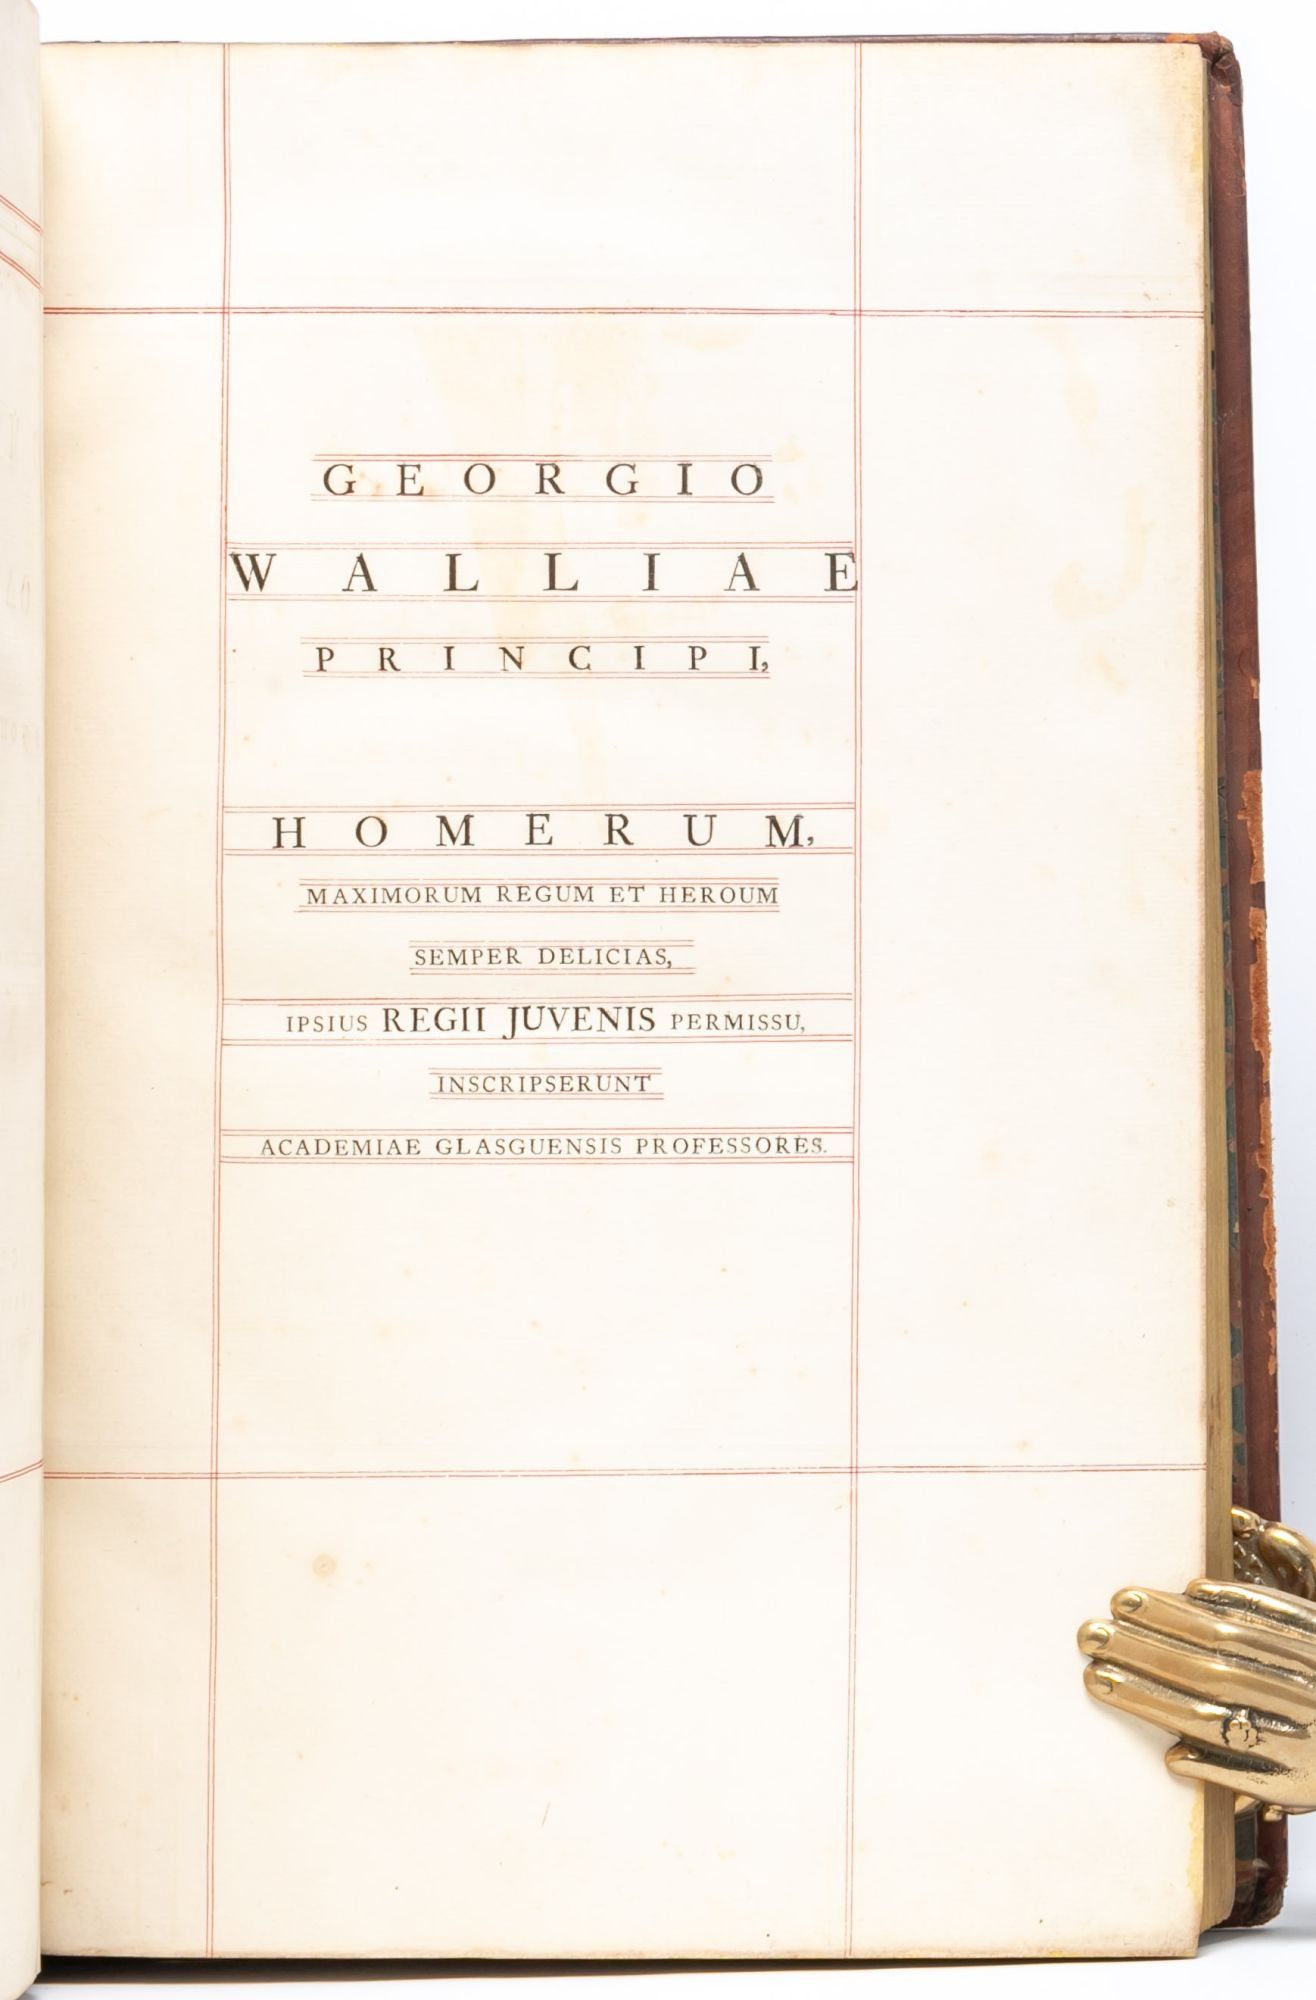 GEORGIO
WALLIAE
PRINCIPI,
HOMERUM,
MAXIMORUM REGUM ET HEROUM
SEMPER DELICIAS,
IPSIUS REGII JUVENIS PERMISSU,
INSCRIPSERUNT
ACADEMIAE GLASGUENSIS PROFESSORES.